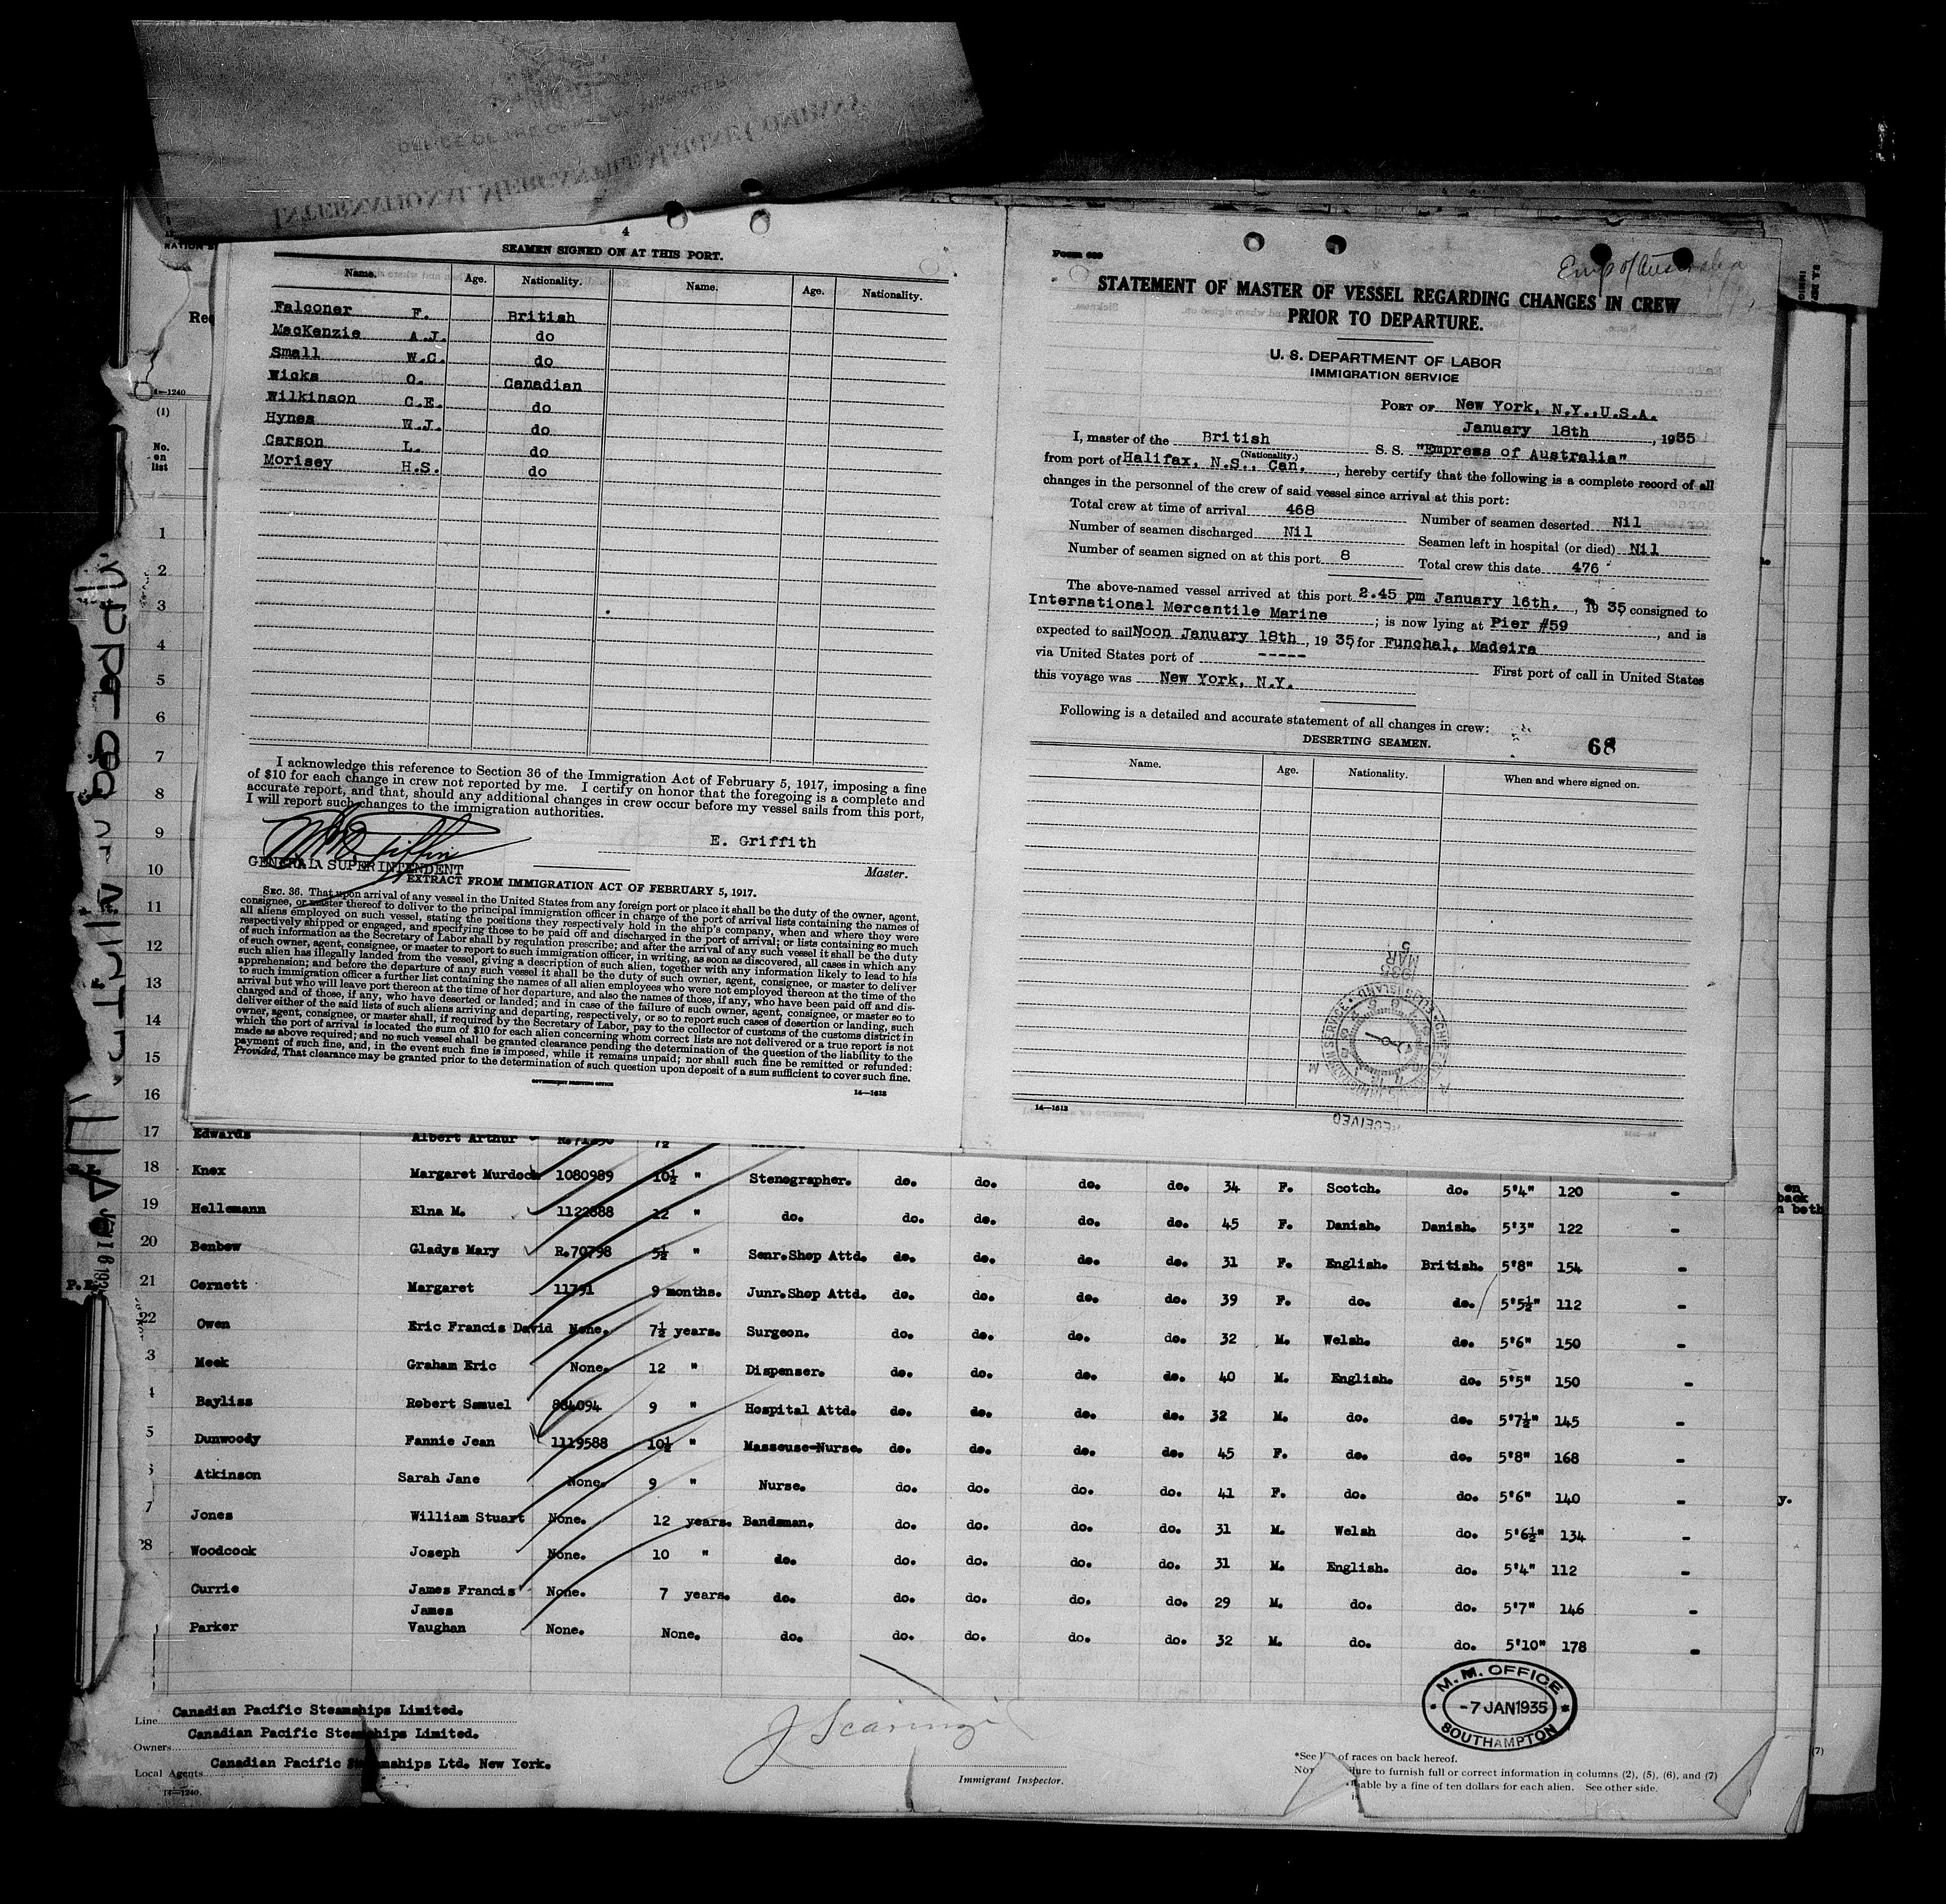 OFFICE OF THE GENERAL MANAGER
INTERNATIONAL MERCANTILE MARINE COMPANY
4
SEAMEN SIGNED ON AT THIS PORT.
Name. Age. Nationality. Name. Age. Nationality.
Falconer F. British
MacKenzie A.J. do
Small W.C. do
Wicks O. Canadian
Wilkinson C.E. do
Hynes W.J. do
Carson L. do
Morisey H.S. do
I acknowledge this reference to Section 36 of the Immigration Act of February 5, 1917, imposing a fine
of $10 for each change in crew not reported by me. I certify on honor that the foregoing is a complete and
accurate report, and that, should any additional changes in crew occur before my vessel sails from this port,
I will report such changes to the immigration authorities.
E. Griffith
GENERAL SUPERINTENDENT
Master.
EXTRACT FROM IMMIGRATION ACT OF FEBRUARY 5, 1917.
SEC. 36. That upon arrival of any vessel in the United States from any foreign port or place it shall be the duty of the owner, agent,
consignee, or master thereof to deliver to the principal immigration officer in charge of the port of arrival lists containing the names of
all aliens employed on such vessel, stating the positions they respectively hold in the ship's company, when and where they were
respectively shipped or engaged, and specifying those to be paid off and discharged in the port of arrival; or lists containing so much
of such information as the Secretary of Labor shall by regulation prescribe; and after the arrival of any such vessel it shall be the duty
of such owner, agent, consignee, or master to report to such immigration officer, in writing, as soon as discovered, all cases in which any
such alien has illegally landed from the vessel, giving a description of such alien, together with any information likely to lead to his
apprehension; and before the departure of any such vessel it shall be the duty of such owner, agent, consignee, or master to deliver
to such immigration officer a further list containing the names of all alien employees who were not employed thereon at the time of the
arrival but who will leave port thereon at the time of her departure, and also the names of those, if any, who have been paid off and dis-
charged and of those, if any, who have deserted or landed; and in case of the failure of such owner, agent, consignee, or master so to
deliver either of the said lists of such aliens arriving and departing, respectively, or so to report such cases of desertion or landing, such
owner, agent, consignee, or master shall, if required by the Secretary of Labor, pay to the collector of customs of the customs district in
which the port of arrival is located the sum of $10 for each alien concerning whom correct lists are not delivered or a true report is not
made as above required; and no such vessel shall be granted clearance pending the determination of the question of the liability to the
payment of such fine, and, in the event such fine is imposed, while it remains unpaid; nor shall such fine be remitted or refunded:
Provided, That clearance may be granted prior to the determination of such question upon deposit of a sum sufficient to cover such fine.
GOVERNMENT PRINTING OFFICE
14—1613
Form 689
Emp of Australia
STATEMENT OF MASTER OF VESSEL REGARDING CHANGES IN CREW
PRIOR TO DEPARTURE.
U. S. DEPARTMENT OF LABOR
IMMIGRATION SERVICE
PORT OF New York, N.Y.,U.S.A.
January 18th, 1935
I, master of the British S. S. "Empress of Australia"
(Nationality.)
from port of Halifax, N.S., Can., hereby certify that the following is a complete record of all
changes in the personnel of the crew of said vessel since arrival at this port:
Total crew at time of arrival 468 Number of seamen deserted Nil
Number of seamen discharged Nil Seamen left in hospital (or died) Nil
Number of seamen signed on at this port 8 Total crew this date 476
The above-named vessel arrived at this port 2.45 pm January 16th., 1935 consigned to
International Mercantile Marine; is now lying at Pier #59, and is
expected to sail Noon January 18th, 1935, for Funchal, Madeira
via United States port of ----- First port of call in United States
this voyage was New York, N.Y.
Following is a detailed and accurate statement of all changes in crew:
68
DESERTING SEAMEN.
Name. Age. Nationality. When and where signed on.
1935
MAR
5
RECEIVED
14—1613
Req
14—1240
(1)
No.
on
list
1
2
3
4
5
6
7
8
9
10
11
12
13
14
15
16
17 Edwards Albert Arthur
18 Knox Margaret Murdoch 1080989 10½ " Stenographer. do. do. do. do. 34 F. Scotch. do. 5'4" 120 -
19 Hellemann Elna M. 1122888 12 " do. do. do. do. do. 45 F. Danish. Danish. 5'3" 122 -
20 Benbow Gladys Mary R.70798 5½ " Senr.Shop Attd. do. do. do. do. 31 F. English. British. 5'8" 154 -
21 Cornett Margaret 11791 9 months. Junr.Shop Attd. do. do. do. do. 39 F. do. do. 5'5½" 112 -
22 Owen Eric Francis David None. 7½ years. Surgeon. do. do. do. do. 32 M. Welsh. do. 5'6" 150 -
3 Meek Graham Eric None. 12 " Dispenser. do. do. do. do. 40 M. English. do. 5'5" 150 -
4 Bayliss Robert Samuel 884094 9 " Hospital Attd. do. do. do. do. 32 M. do. do. 5'7½" 145 -
5 Dunwoody Fannie Jean 1119588 10½ " Masseuse-Nurse. do. do. do. do. 45 F. do. do. 5'8" 168 -
Atkinson Sarah Jane None. 9 " Nurse. do. do. do. do. 41 F. do. do. 5'6" 140 -
7 Jones William Stuart None. 12 years. Bandsman. do. do. do. do. 31 M. Welsh do. 5'6½" 134 -
28 Woodcock Joseph None. 10 " do. do. do. do. do. 31 M. English. do. 5'4" 112 -
Currie James Francis None. 7 years. do. do. do. do. do. 29 M. do. do. 5'7" 146 -
James
Parker Vaughan None. None. do. do. do. do. do. 32 M. do. do. 5'10" 178 -
Line Canadian Pacific Steamships Limited.
Owners Canadian Pacific Steamships Limited.
Local Agents Canadian Pacific Steamships Ltd. New York.
14—1240.
J Scaringi
Immigrant Inspector.
M. M. OFFICE
-7 JAN 1935
SOUTHAMPTON
*See list of races on back hereof.
ilure to furnish full or correct information in columns (2), (5), (6), and (7)
able by a fine of ten dollars for each alien. See other side.
(7)